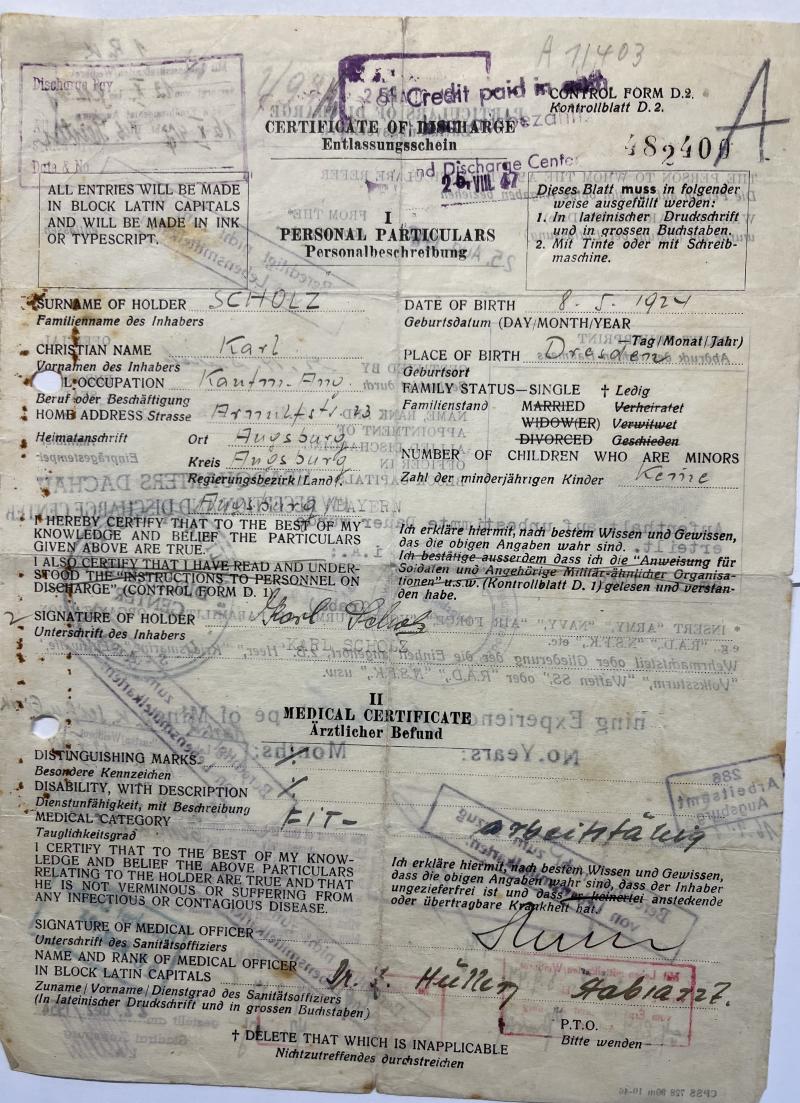 Discharge Pay
Date & No
A 1/403
Credit paid in
CONTROL FORM D.2.
Kontrollblatt D.2.
A
CERTIFICATE OF DISCHARGE
Entlassungsschein
482400
nd Discharge Center
25. VIII. 47
ALL ENTRIES WILL BE MADE
IN BLOCK LATIN CAPITALS
AND WILL BE MADE IN INK
OR TYPESCRIPT.
Dieses Blatt muss in folgender
weise ausgefüllt werden:
1. In lateinischer Druckschrift
und in grossen Buchstaben.
2. Mit Tinte oder mit Schreib-
maschine.
I
PERSONAL PARTICULARS
Personalbeschreibung
SURNAME OF HOLDER SCHOLZ
Familienname des Inhabers
CHRISTIAN NAME Karl
Vornamen des Inhabers
L OCCUPATION Kaufm. Ang.
Beruf oder Beschäftigung
HOME ADDRESS Strasse Arnulfstr. 23
Heimatanschrift Ort Augsburg
Kreis Augsburg
Regierungsbezirk/Land
Augsburg/
DATE OF BIRTH 8. 5. 1924
Geburtsdatum (DAY/MONTH/YEAR
Tag/Monat/Jahr)
PLACE OF BIRTH Dresden
Geburtsort
FAMILY STATUS—SINGLE † Ledig
Familienstand MARRIED Verheiratet
WIDOW(ER) Verwitwet
DIVORCED Geschieden
NUMBER OF CHILDREN WHO ARE MINORS
Zahl der minderjährigen Kinder Keine
I HEREBY CERTIFY THAT TO THE BEST OF MY
KNOWLEDGE AND BELIEF THE PARTICULARS
GIVEN ABOVE ARE TRUE.
I ALSO CERTIFY THAT I HAVE READ AND UNDER-
STOOD THE "INSTRUCTIONS TO PERSONNEL ON
DISCHARGE" (CONTROL FORM D. 1)
Ich erkläre hiermit, nach bestem Wissen und Gewissen,
das die obigen Angaben wahr sind.
Ich bestätige ausserdem dass ich die "Anweisung für
Soldaten und Angehörige Militär-ähnlicher Organisa-
tionen" u.s.w. (Kontrollblatt D. 1) gelesen und verstan-
den habe.
2 SIGNATURE OF HOLDER Karl Scholz
Unterschrift des Inhabers
II
MEDICAL CERTIFICATE
Ärztlicher Befund
DISTINGUISHING MARKS
Besondere Kennzeichen
DISABILITY, WITH DESCRIPTION
Dienstunfähigkeit, mit Beschreibung
MEDICAL CATEGORY FIT- arbeitsfähig
Tauglichkeitsgrad
I CERTIFY THAT TO THE BEST OF MY KNOW-
LEDGE AND BELIEF THE ABOVE PARTICULARS
RELATING TO THE HOLDER ARE TRUE AND THAT
HE IS NOT VERMINOUS OR SUFFERING FROM
ANY INFECTIOUS OR CONTAGIOUS DISEASE.
Ich erkläre hiermit, nach bestem Wissen und Gewissen,
dass die obigen Angaben wahr sind, dass der Inhaber
ungezieferfrei ist und dass er keinerlei ansteckende
oder übertragbare Krankheit hat.
SIGNATURE OF MEDICAL OFFICER
Unterschrift des Sanitätsoffiziers
NAME AND RANK OF MEDICAL OFFICER
IN BLOCK LATIN CAPITALS Dr.
Zuname/Vorname/Dienstgrad des Sanitätsoffiziers
(In lateinischer Druckschrift und in grossen Buchstaben)
P.T.O.
Bitte wenden
† DELETE THAT WHICH IS INAPPLICABLE
Nichtzutreffendes durchstreichen